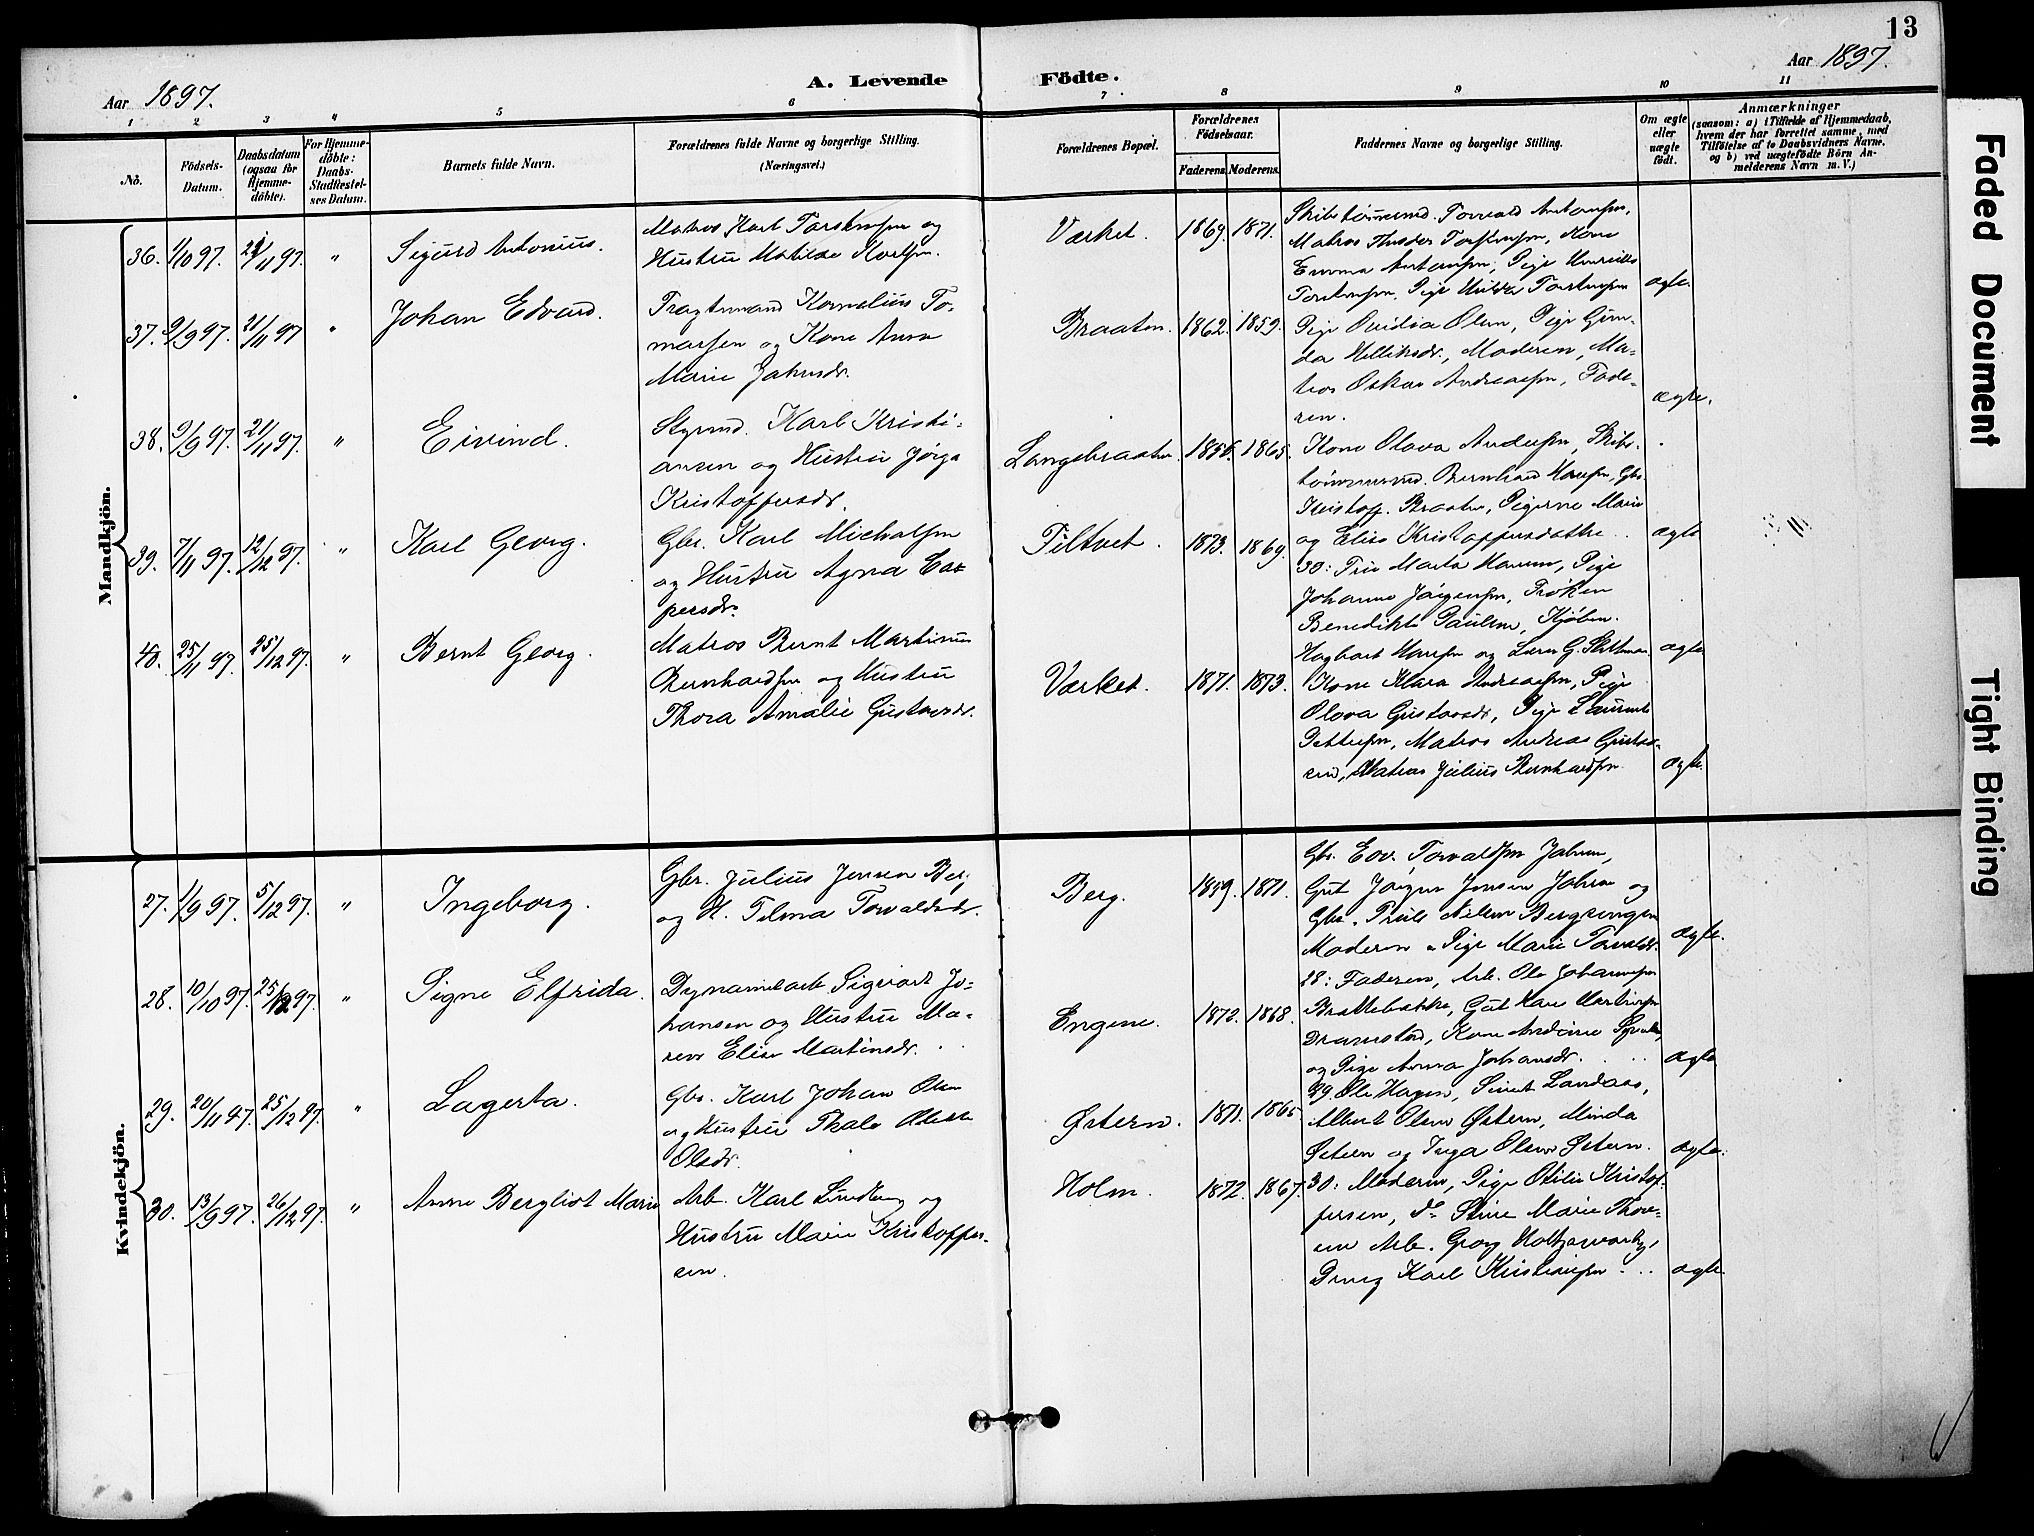 13
Aar 1897.
A. Levende
Födte.
Aar 1897.
1 2 3 4 5 6 7 8 9 10 11
No.
Födsels-
Datum.
Daabsdatum
(ogsaa for
Hjemme-
döbte).
For Hjemme-
döbte:
Daabs-
Stadfæstel-
ses Datum.
Barnets fulde Navn.
Forældrenes fulde Navne og borgerlige Stilling.
(Næringsvei.)
Forældrenes Bopæl.
Forældrenes
Födselsaar.
Faderens. Moderens.
Faddernes Navne og borgerlige Stilling.
Om ægte
eller
uægte
födt.
Anmærkninger
(saasom: a) i Tilfælde af Hjemmedaab,
hvem der har forrettet samme, med
Tilföielse af to Daabsvidners Navne.
og b) ved uægtefödte Börn An-
melderens Navn m. V.)
Mandkjön.
36. 1/10 97. 21/11 97. " Sigurd Antonius.
Matros Karl Torstensen og
Hustru Matilde Karlsen.
Værket. 1869. 1871.
Skibstømmermd. Torvald Antonsen,
Matros Anders Torstensen, Kone
Emma Antonsen, Pige
Torstensen, Pige Hilda Torstensen
ægte.
37. 9/9 97. 21/11 97 " Johan Edvard.
Fragtemand Kornelius To-
massen og Kone Anna
Marie Johnsdr.
Braaten. 1862. 1859.
Pige Ovidia Olsen, Pige Gun-
da Helliksdr., Moderen, Ma-
tros Oskar Andreasen, Fade-
ren.
ægte.
38. 9/9 97. 21/11 97. " Eivind.
Styrmd. Karl Kristi-
ansen og Hustru Jørga
Kristoffersdr.
Langebraaten. 1856. 1865.
Kone Olava Andersen, Skibs-
tømmermd. Bernhard Hansen, Gbr.
Kristof. Braaten, Pigerne Marie
og Elise Kristoffersdatter.
ægte
39. 7/11 97. 12/12 97. " Karl Georg.
Gbr. Karl Michalsen
og Hustru Agna Cas
persdr.
Filtvet. 1873. 1869.
30: Fru Marta Hansen, Pige
Johanne Jørgensen, Frøken
Benedikte Paulsen, Kjøbm.
Hagbart Hansen og Lærer G.
ægte
40. 25/11 97. 25/12 97. " Bernt Georg.
Matros Bernt Martinius
Bernhardsen og Hustru
Thora Amalie Gustavsdr.
Værket. 1871. 1873.
Kone Klara Andreasen, Pige
Olava Gustavsdr, Pige Laurentse
Pettersen, Matros Andreas Gustav-
sen, Matros Julius Bernhardsen.
ægte.
Kvindekjön.
27. 1/9 97. 5/12 97. " Ingeborg.
Gbr. Julius Jensen Berg
og H. Tilma Torvaldsdr.
Berg. 1859. 1871.
Gbr. Edv. Torvaldsen Jahren,
Gut Jørgen Jensen Jahren og
Gbr. Nilsen Bergsengen
Moderen & Pige Marie Torvaldsdr.
ægte.
28. 10/10 97. 25/12 97. " Signe Elfrida.
Dynamitarb. Sigvart Jo-
hansen og Hustru Ma-
ren Elise Martinsdr.
Engene. 1872. 1868.
28: Faderen, Arb. Ole Johannesen
Brattebakke, Gut Karl Martinsen
Dramstad, Kone Andrine
og Pige Anna Johansdr.
ægte
29. 20/11 97. 25/12 97. " Lagerta.
Gbr. Karl Johan Olsen
og Hustru Thale
Olsdr.
Østern. 1871. 1865.
29. Ole Hagen, Sivert Landaas,
Albert Olsen Østern, Minda
Østern og Inga Olsen Østern.
ægte.
30. 13/9 97. 26/12 97. " Anne Bergliot Marie
Arb. Karl Lindberg og
Hustru Marie Kristoffer-
sen.
Holm. 1872. 1867.
30: Moderen, Pige Otilie Kristof-
fersen, do Stine Marie Thore-
sen Arb. Georg
Dreng Karl Kristiansen.
ægte
Faded Document
Tight Binding